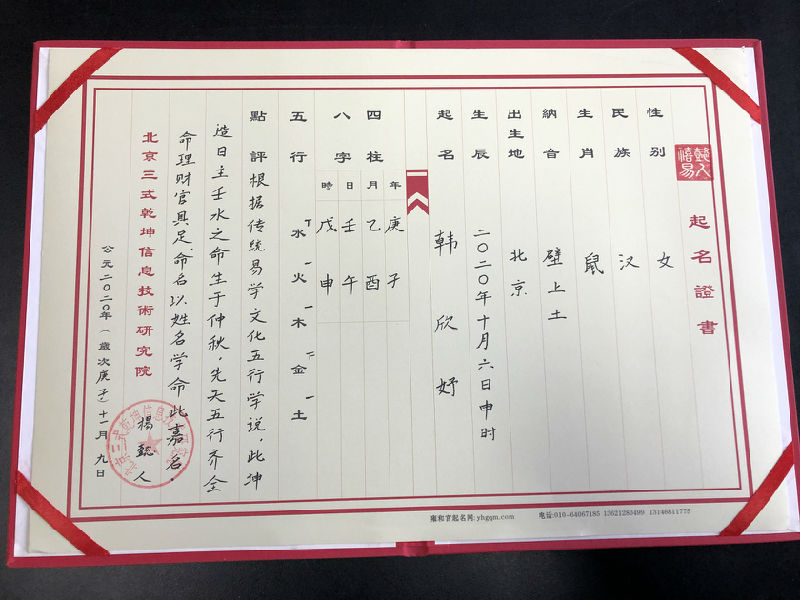 起名證書
性别 女
民族 汉
生肖 鼠
納音 壁上土
出生地 北京
生辰 二〇二〇年十月六日申时
起名 韩欣妤
四柱八字
年 庚子
月 乙酉
日 壬午
時 戊申
五行 水一火一木金一土
點評 根据传统易学文化五行学说，此坤
造日主壬水之命生于仲秋，先天五行齐全
命理财官具足，命名以姓名学命此嘉名。
北京三式乾坤信息技術研究院
楊懿人
公元二〇二〇年（歲次庚子）十一月九日
雍和宫起名网:yhgqm.com 电话:010-64067185 13621283499